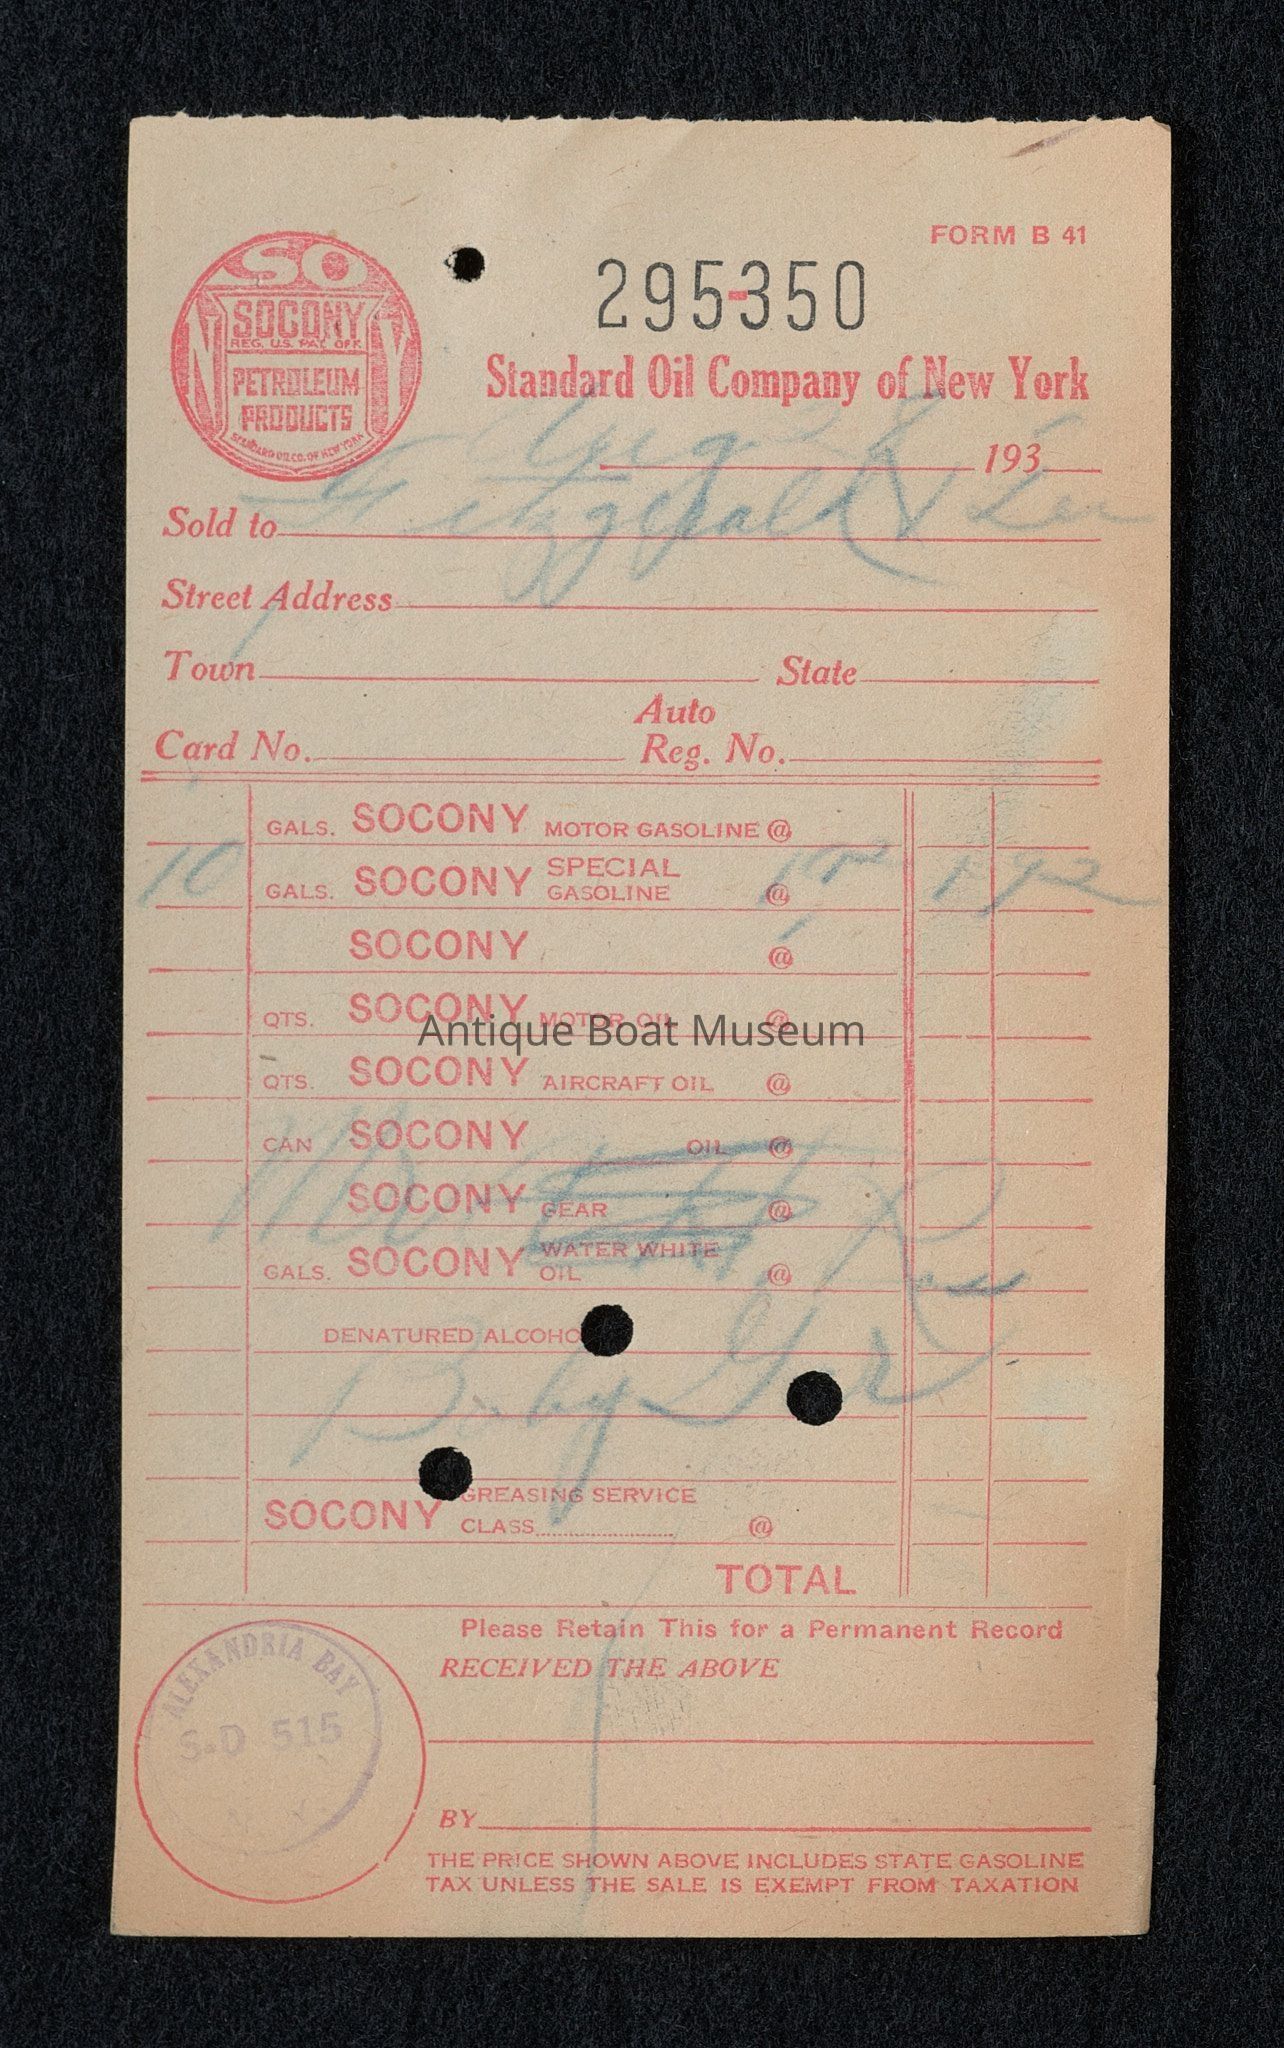 FORM B 41
295-350
SO
N Y
SOCONY
REG. U.S. PAT. OFF.
PETROLEUM
PRODUCTS
STANDARD OIL CO. OF NEW YORK
Standard Oil Company of New York
Aug 28 193
Sold to Fitzgerald & Lee
Street Address
Town State
Auto
Card No. Reg. No.
GALS. SOCONY MOTOR GASOLINE @
10 GALS. SOCONY SPECIAL GASOLINE @ 1 92
SOCONY @
QTS. SOCONY MOTOR OIL @
Antique Boat Museum
QTS. SOCONY AIRCRAFT OIL @
CAN SOCONY OIL @
SOCONY GEAR @
GALS. SOCONY WATER WHITE OIL @
DENATURED ALCOHO
Baby Gar
SOCONY GREASING SERVICE
CLASS @
TOTAL
Please Retain This for a Permanent Record
RECEIVED THE ABOVE
ALEXANDRIA BAY
S-D 515
N. Y.
BY
THE PRICE SHOWN ABOVE INCLUDES STATE GASOLINE
TAX UNLESS THE SALE IS EXEMPT FROM TAXATION